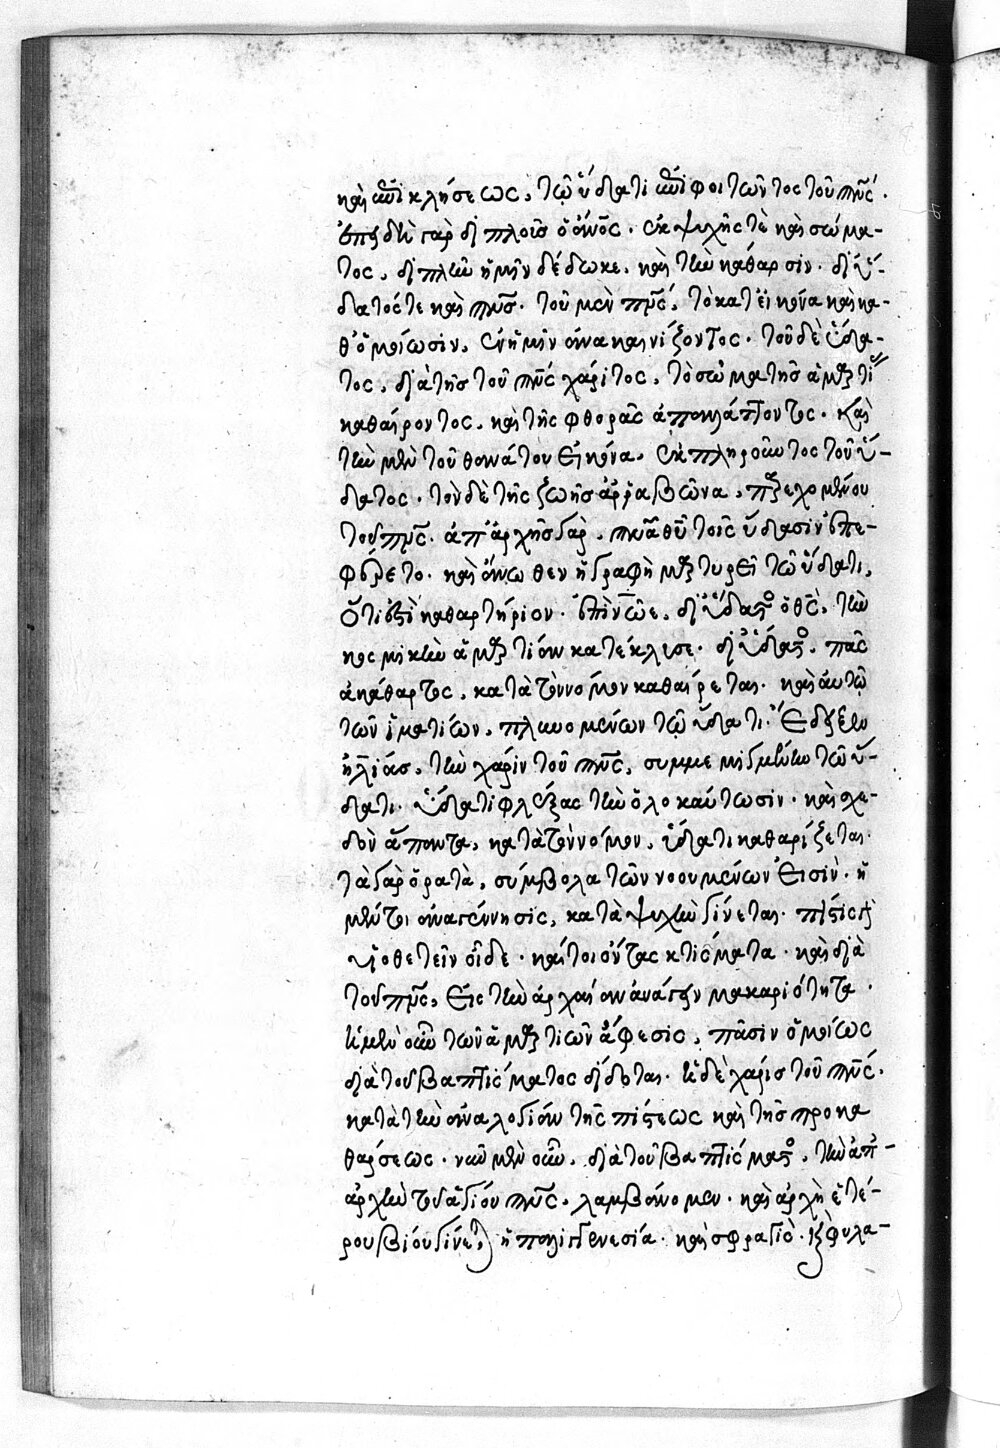 καὶ ἐπικλήσεως, τῷ ὕδατι ἐπιφοιτῶντος τοῦ πνς.
ἐπειδὴ γὰρ διπλοῦς ὁ ἄνος. ἐκ ψυχῆς τὲ καὶ σώμα-
τος, διπλῆν ἡμῖν δέδωκε, καὶ τὴν κάθαρσιν. δι' ὕ-
δατός τε καὶ πνς. τοῦ μὲν πνς, τὸ κατ' εἰκόνα καὶ κα-
θ' ὁμοίωσιν, ἐν ἡμῖν ἀνακαινίζοντος. τοῦ δὲ ὕδα-
τος, διὰ τῆς τοῦ πνς χάριτος, τὸ σῶμα τῆς ἁμαρτί
καθαίροντος, καὶ τῆς φθορᾶς ἀπαλλάττοντος. καὶ
τὴν μὲν τοῦ θανάτου εἰκόνα, ἐκπληροῦντος τοῦ ὕ-
δατος. τὸν δὲ τῆς ζωῆς ἀρραβῶνα, παρεχομένου
τοῦ πνς. ἀπ' ἀρχῆς γὰρ, πνα θυ τοῖς ὕδασιν ἐπε-
φέρετο. καὶ ἄνωθεν ἡ γραφὴ μαρτυρεῖ τῷ ὕδατι,
ὅτι ἐστὶ καθαρτήριον. ἐπὶ νῶε, δι' ὕδατος ὁ θς, τὴν
κοσμικὴν ἁμαρτίαν κατέκλυσε. δι' ὕδατος, πᾶς
ἀκάθαρτος, κατὰ τὸν νόμον καθαίρεται. καὶ αὐτῶ
τῶν ἱματίων, πλυνομένων τῷ ὕδατι. ἔδειξεν
ἠλίας, τὴν χάριν τοῦ πνς, συμμεμιγμένην τῷ ὕ-
δατι. ὕδατι φλέξας τὴν ὁλοκαύτωσιν. καὶ σχε-
δὸν ἅπαντα, κατὰ τὸν νόμον, ὕδατι καθαρίζεται.
τὰ γὰρ ὁρατὰ, σύμβολα τῶν νοουμένων εἰσίν. ἡ
μέντοι ἀναγέννησις, κατὰ ψυχὴν γίνεται. πίστις γὰρ
υἱοθετεῖν οἶδε. καίτοι ὄντας κτίσματα. καὶ διὰ
τοῦ πνς, εἰς τὴν ἀρχαίαν ἀνάγειν μακαριότητα.
ἡ μὲν οὖν τῶν ἁμαρτιῶν ἄφεσις, πᾶσιν ὁμοίως
διὰ τοῦ βαπτίσματος δίδοται. ἡ δὲ χάρις τοῦ πνς.
κατὰ τὴν ἀναλογίαν τῆς πίστεως καὶ τῆς προκα
θάρσεως. νῦν μὲν οὖν, διὰ τοῦ βαπτίσματος, τὴν ἀπ-
αρχὴν τοῦ ἁγίου πνς, λαμβάνομεν. καὶ ἀρχὴ ἑτέ-
ρου βίου γίνεται, ἡ παλιγγενεσία. καὶ σφραγὶς. καὶ φυλα-